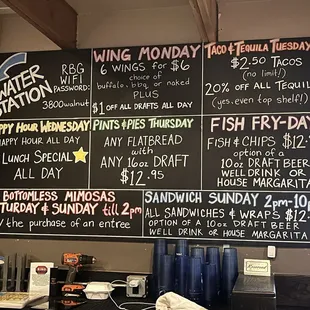 WATER
STATION
RBG
WIFI
PASSWORD:
3800walnut
WING MONDAY
6 WINGS for $6
choice of
buffalo, bbq or naked
PLUS
$1 OFF ALL DRAFTS ALL DAY
TACO & TEQUILA TUESDAY
$2.50 TACOS
(no limit!)
20% OFF ALL TEQUIL
(yes, even top shelf!)
HAPPY HOUR WEDNESDAY
HAPPY HOUR ALL DAY
LUNCH SPECIAL
ALL DAY
PINTS & PIES THURSDAY
ANY FLATBREAD
with
ANY 16oz DRAFT
$12.95
FISH FRY-DAY
FISH & CHIPS $12.
option of a
10oz DRAFT BEER
WELL DRINK or
HOUSE MARGARITA
BOTTOMLESS MIMOSAS
SATURDAY & SUNDAY till 2pm
the purchase of an entree
SANDWICH SUNDAY 2pm-10p
ALL SANDWICHES & WRAPS $12
OPTION OF A 10oz DRAFT BEER
WELL DRINK OR HOUSE MARGARITA